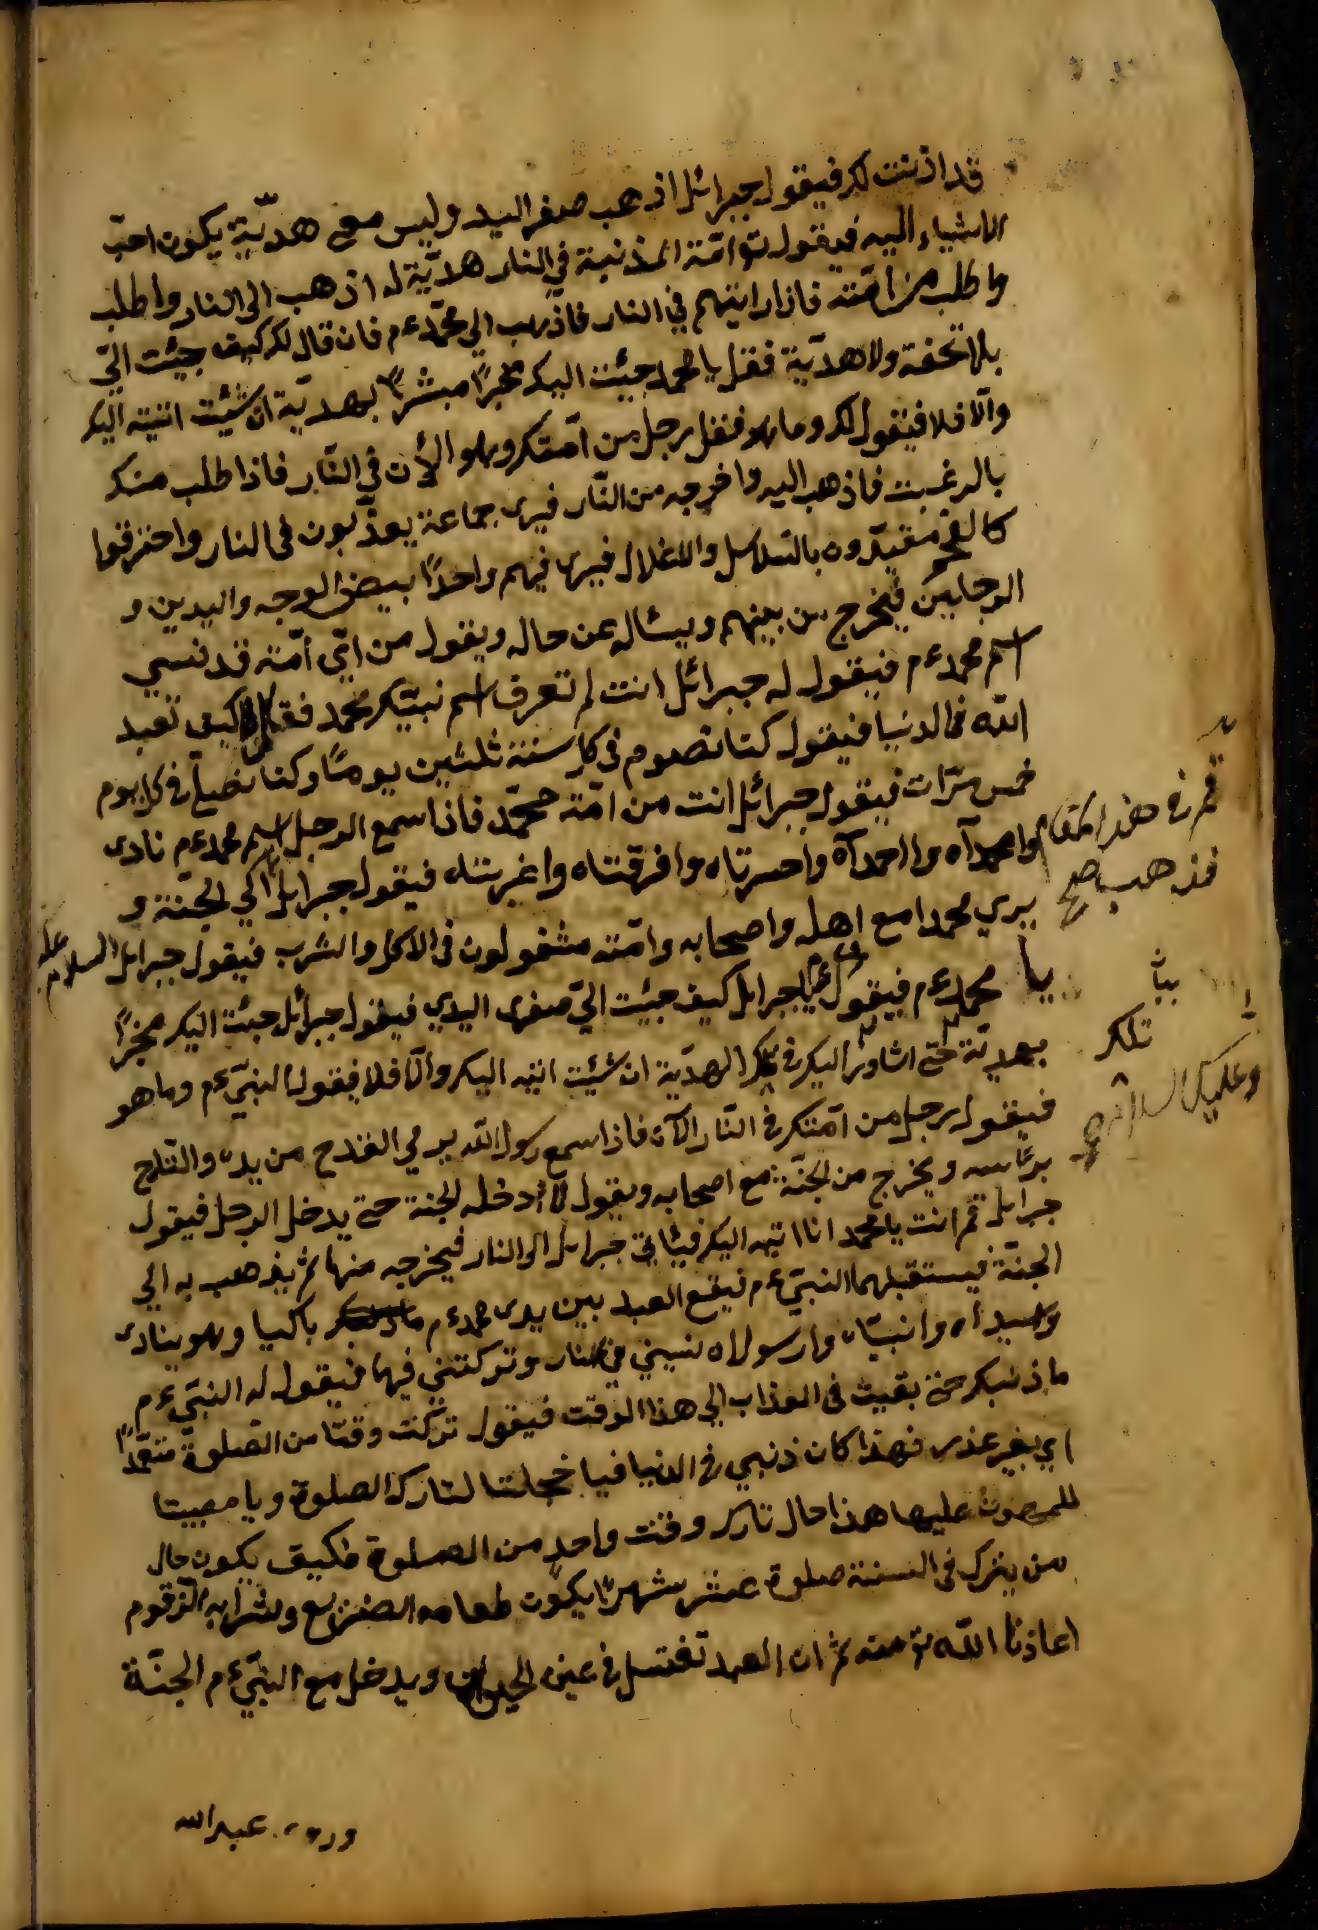 قد اذنت لك فيقول جبرائل اذهب صفر اليد وليس معي هديّة يكون احبّ
الاشياء اليه فيقول تع امّته المذنبة في النار هديّة له اذهب الى النار واطلب
واطلب من امّته فاذا رايتهم في النار فاذهب الي محمّد ءم فان قال لك كيف جئت اليّ
بلا تحفة ولا هديّة فقل يا محمد جئت اليك مخبرًا مبشرًا بهديّة ان شئت اتيته اليك
والّا فلا فيقول لك وما هو فقل رجل من امّتك وهو الأن في النّار فاذا طلب منك
بالرغبت فاذهب اليه واخرجه من النّار فيرى جماعة يعذّبون في النار واحترقوا
كالفحم مقيّدون بالسّلاسل والاغلال فيرها فيهم واحدًا بيض الوجه واليدين و
الرجلين فيخرج من بينهم ويسئاله عن حاله ويقول من ايّ امّته قد نسي
اسم محمد ءم فيقول له جبرائل انت لم تعرف اسم نبيّك محمد فقال كيف تعبد
الله في الدنيا فيقول كنا نصوم في كل سنة ثلثين يومًا وكنا نصلّي في كل يوم
خمس مرّات فيقول جبرائل انت من امّة محمّد فاذا سمع الرجل اسم محمد ءم نادى
وامحمدآه وااحمدآه واحسرتاه وافرقتاه واغربتاه فيقول جبرايل الي الجنّة و
يري محمدا مع اهله واصحابه وامّته مشغولون في الاكل والشرب فيقول جبرايل السلام عليك
يا محمد ءم فيقول يا جبرايل كيف جئت اليّ صفرى اليدي فيقول جبرائل جئت اليك مخبرًا
بهديّة حتي اشاور اليك في تلك الهديّة ان شئت اتيه اليك والّا فلا فيقول النبيّ ءم وما هو
فيقول رجل من امّتك في النّار الآن فاذا سمع رسول الله يرمي القدح من يده والتاج
برئاسه ويخرج من الجنّة مع اصحابه ويقول لا ادخله الجنة حتي يدخل الرجل فيقول
جبرايل قم انت يا محمد انا اتيه اليك فيئاتي جبرايل الي النار فيخرجه منها ثم يذهب به الي
الجنّة فيستقبلهما النبيّ ءم فيقع العبد بين يدى محمد ءم باكيا وهو ينادى
واسيداه وانبيّاه وارسولاه نسيني في النار وتركتني فيها فيقول له النبيّ ءم
ما ذنبك حتي بقيت في العذاب الي هذا الوقت فيقول تركت وقتا من الصّلوة متعمّدًا
اي بغير عذر فهذا كان ذنبي في الدنيا فيا خجلتا لتارك الصلوة ويا مصيبتا
عليها هذا حال تارك وقت واحد من الصلوة فكيف يكون حال
من يترك في السنة صلوة عشر شهرًا يكون طعامه الضريع وشرابه الزقوم
اعاذنا الله تع منه ثم ان العبد تغتسل في عين الحيوان ويدخل مع النبيّ ءم الجنّة
قم في هذا المقام
فذهب صح
تلك
وعليك السلام صح
عبد الله